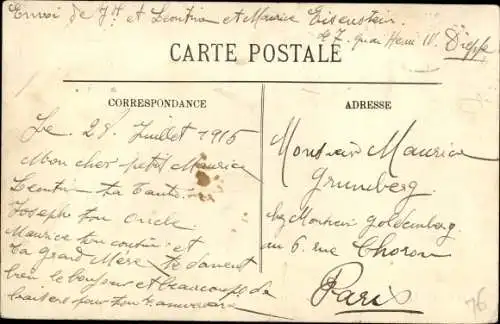 Envoi de Jh et Léontine et Maurice Eisenstein.
47 quai Henri IV. Dieppe
CARTE POSTALE
CORRESPONDANCE
ADRESSE
Le 28 Juillet 1915
Mon cher petit Maurice
Léontine ta tante.
Joseph ton oncle
Maurice ton cousin et
ta grand Mère te donent
bien le bonjour et beaucoup de
baisers pour ton anniversaire
Monsieur Maurice
Grunberg.
chez Monsieur Goldenberg.
au 6. rue Choron
Paris
76